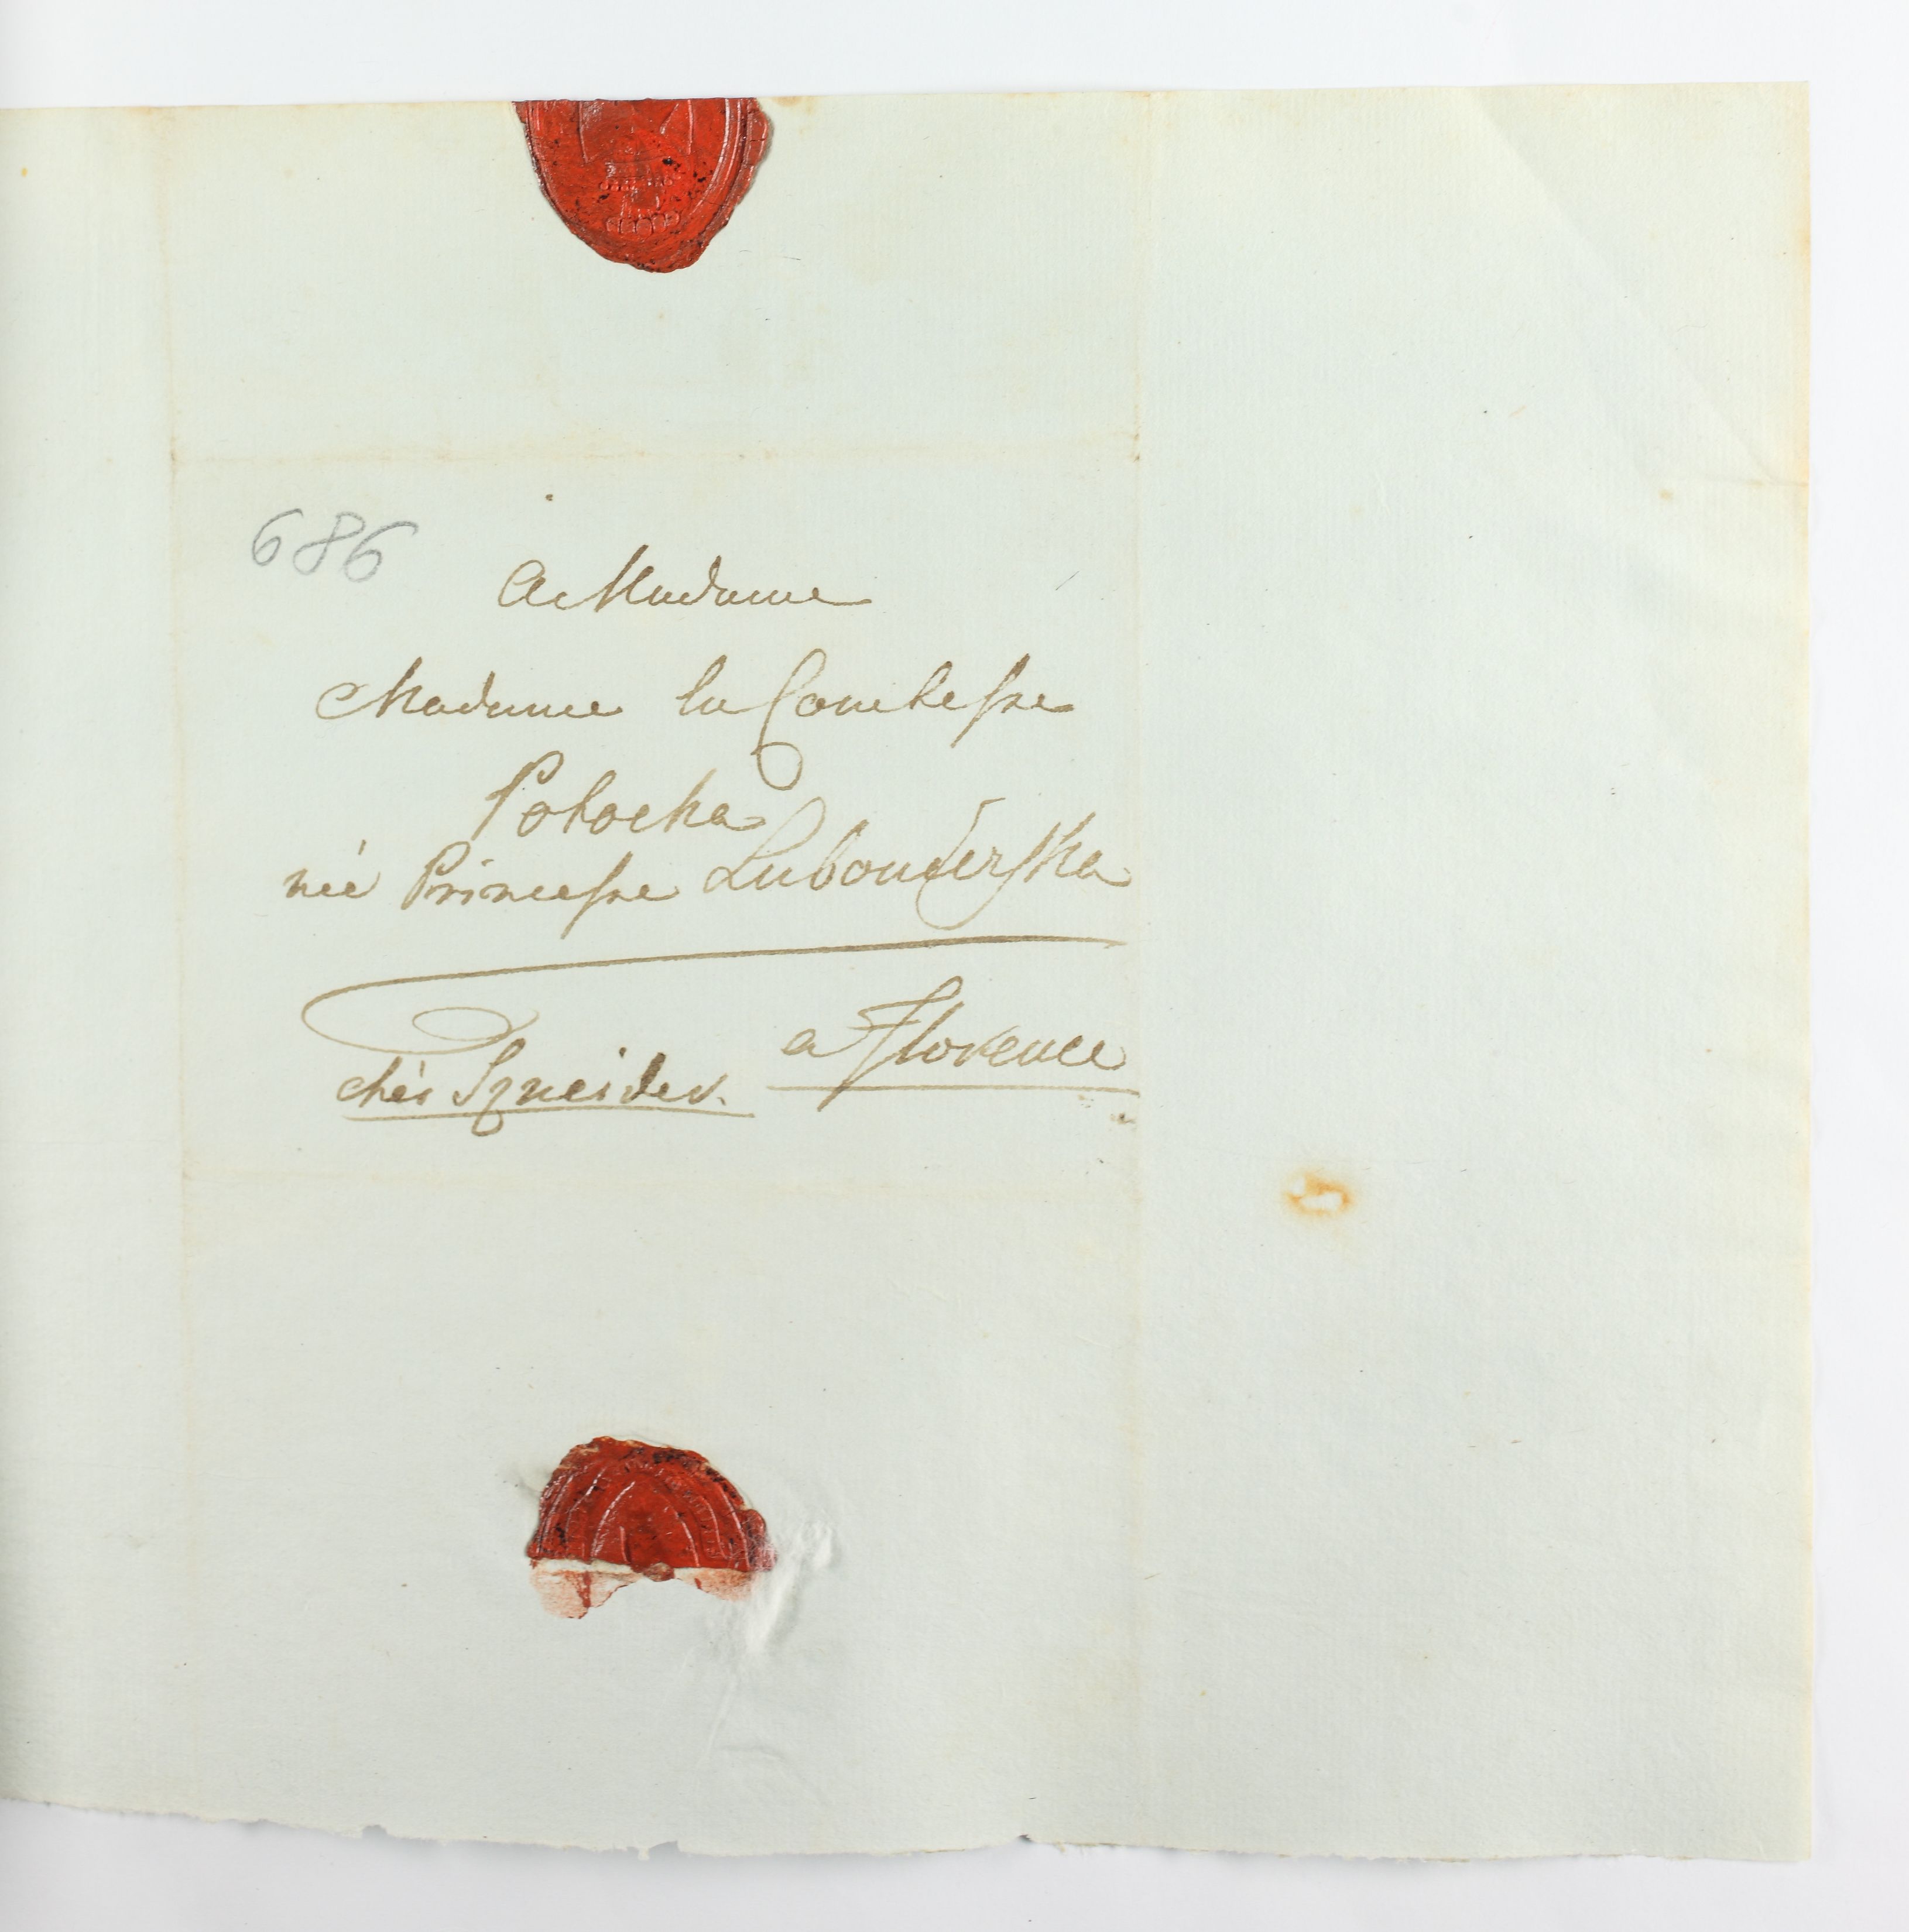 686
A Madame
Madame la Comtesse
Potocka
née Princesse Lubomirska
a Florence
chés Szneider.